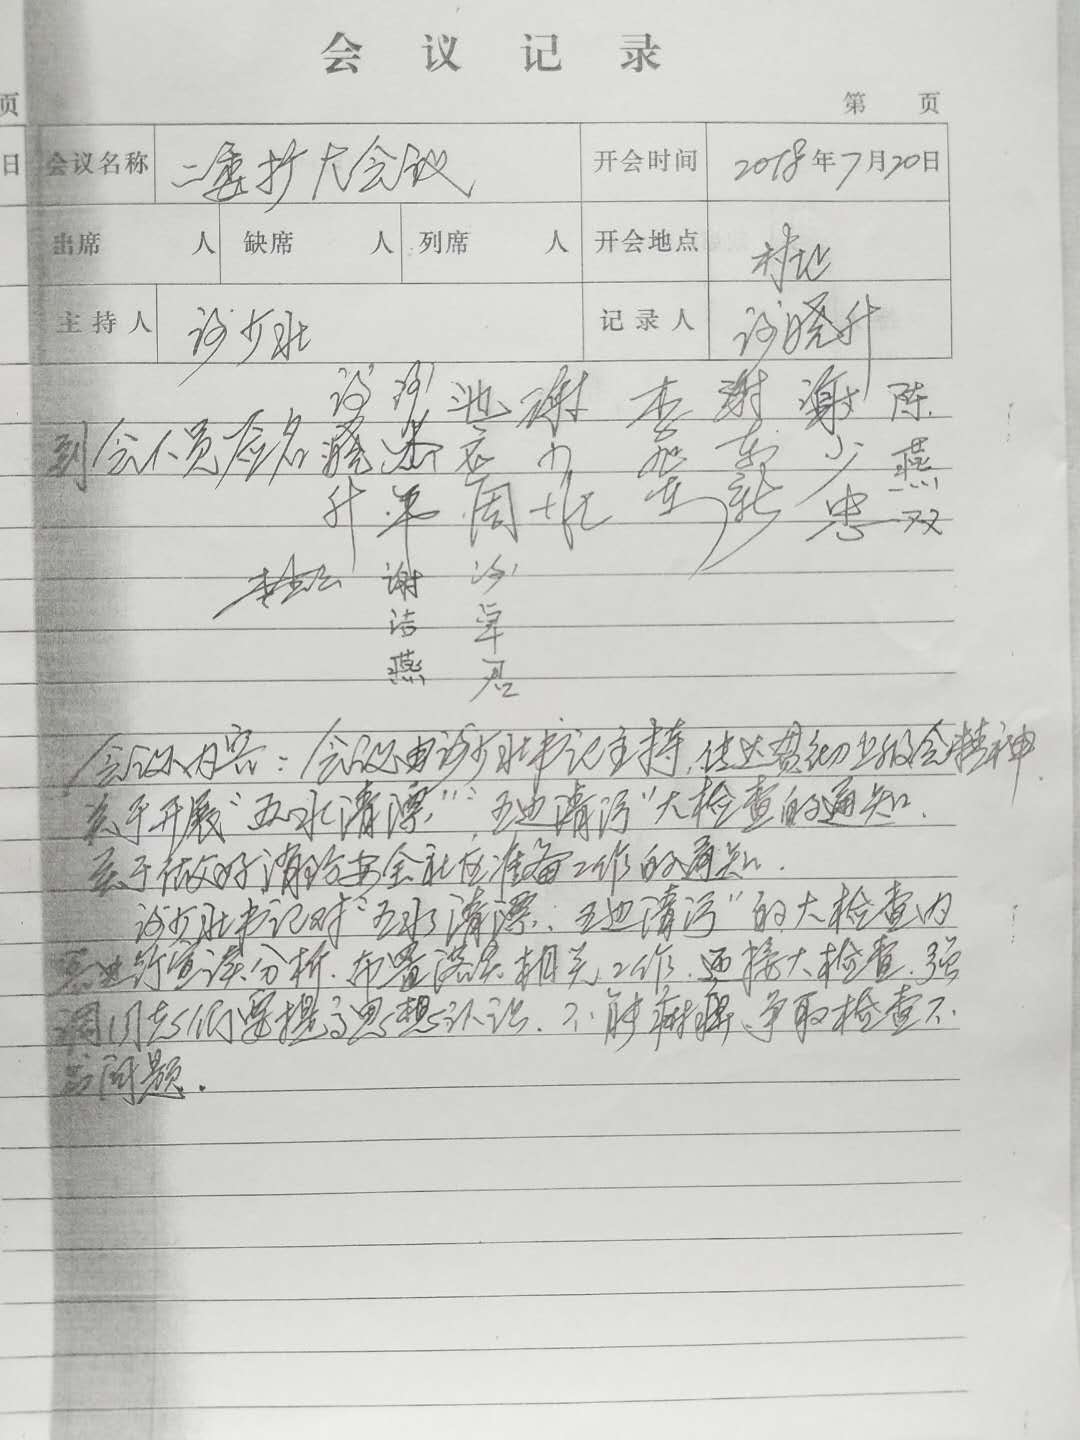 会议记录
第 页
页
日
会议名称 二委扩大会议 开会时间 2018年7月20日
出席 人 缺席 人 列席 人 开会地点 村址
主持人 谢少壮 记录人 谢晓升
到会人员签名 谢晓升 谢 平 池 周 谢少壮 李 谢 新 谢少忠 陈燕双
谢洁燕 谢草君
会议内容：会议由谢少壮书记主持，传达贯彻上级会精神
关于开展“五水清漂”，“五边清污”大检查的通知．
关于做好消除安全 准备工作的通知．
谢少壮书记对“五水清漂，五边清污”的大检查内
容进行宣读分析，布置落实相关工作，迎接大检查，强
调同志们要提高思想认识，不能麻痹，争取检查不
出问题．